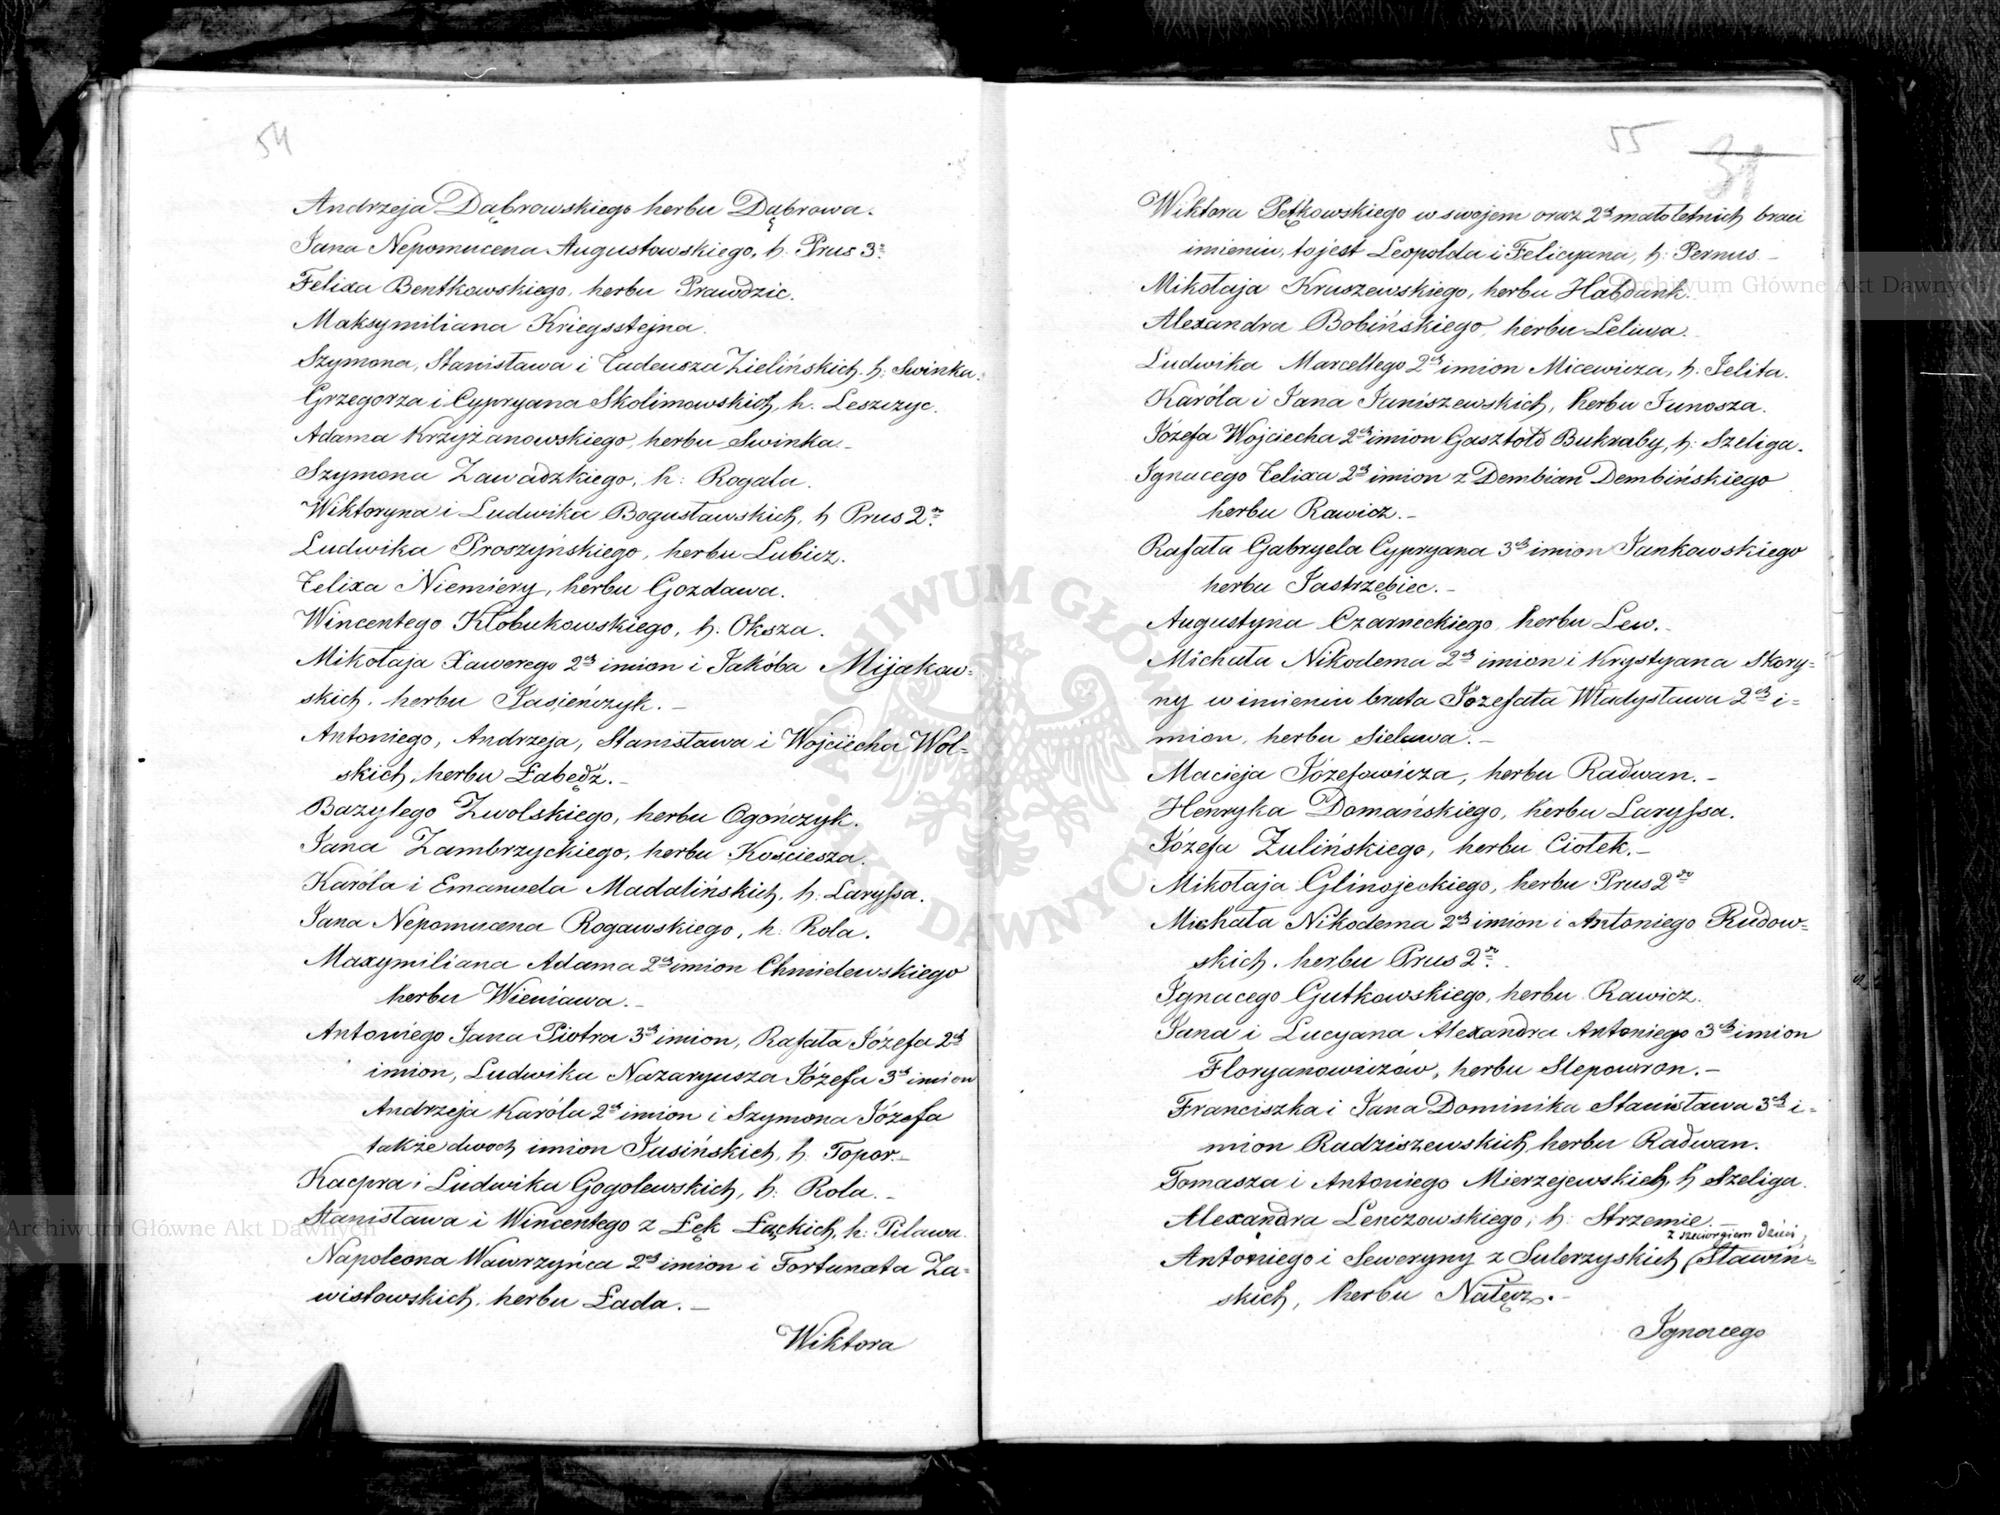 54
Andrzeja Dąbrowskiego herbu Dąbrowa.
Jana Nepomucena Augustowskiego, h. Prus 3º.
Felixa Bentkowskiego, herbu Prawdzic.
Maksymiliana Kriegsstejna.
Szymona, Stanisława i Tadeusza Zielińskich. h: Swinka.
Grzegorza i Cypryana Skolimowskich, h. Leszczyc.
Adama Krzyżanowskiego, herbu Swinka.-
Szymona Zawadzkiego, h: Rogala.
Wiktoryna i Ludwika Bogusławskich, h Prus 2º.
Ludwika Proszyńskiego, herbu Lubicz.
Felixa Niemiery, herbu Gozdawa.
Wincentego Kłobukowskiego, h. Oksza.
Mikołaja Xawerego 2ch imion i Jakóba Mijakow=
skich, herbu Jasieńczyk.-
Antoniego, Andrzeja, Stanisława i Wojciecha Wol=
skich, herbu Łabędź.-
Bazylego Zwolskiego, herbu Ogończyk.
Jana Zambrzyckiego, herbu Kościesza.
Karóla i Emanuela Madalińskich, h. Laryssa.
Jana Nepomucena Rogawskiego, h. Rola.
Maxymiliana Adama 2ch imion Chmielewskiego
herbu Wieniawa.-
Antoniego Jana Piotra 3ch imion, Rafała Józefa 2ch
imion, Ludwika Nazaryusza Józefa 3ch imion
Andrzeja Karóla 2ch imion i Szymona Józefa
także dwoch imion Jasińskich, h. Topor.-
Kacpra i Ludwika Gogolewskich, h: Rola.-
Stanisława i Wincentego z Łęk Łąckich, h: Pilawa.
Napoleona Wawrzyńca 2ch imion i Fortunata Za=
wisłowskich, herbu Łada.-
Wiktora
55
31
Wiktora Pętkowskiego w swojem oraz 2ch małoletnich braci
imieniu, to jest Leopolda i Felicyana, h: Pernus.-
Mikołaja Kruszewskiego, herbu Habdank.
Alexandra Bobińskiego, herbu Leliwa.-
Ludwika Marcellego 2ch imion Micewicza, h. Jelita.
Karóla i Jana Janiszewskich, herbu Junosza.
Józefa Wojciecha 2ch imion Gasztołd Bukraby, h: Szeliga.
Ignacego Felixa 2ch imion z Dembian Dembińskiego
herbu Rawicz.-
Rafała Gabryela Cypryana 3ch imion Jankowskiego
herbu Jastrzębiec.-
Augustyna Czarneckiego, herbu Lew.-
Michała Nikodema 2ch imion i Krystyana Skory=
ny w imieniu brata Józefata Władysława 2ch i=
mion, herbu Sielawa.-
Macieja Józefowicza, herbu Radwan.-
Henryka Domańskiego, herbu Laryssa.
Józefa Zulińskiego, herbu Ciołek.-
Mikołaja Glinojeckiego, herbu Prus 2º
Michała Nikodema 2ch imion i Antoniego Rudow=
skich, herbu Prus 2º.
Ignacego Gutkowskiego, herbu Rawicz.
Jana i Lucyana Alexandra Antoniego 3ch imion
Floryanowiczów, herbu Slepowron.-
Franciszka i Jana Dominika Stanisława 3ch i=
mion Radziszewskich, herbu Radwan.
Tomasza i Antoniego Mierzejewskich, h Szeliga.
Alexandra Lenczowskiego, h: Strzemie.-
z sześciorgiem dzieci,
Antoniego i Seweryny z Sulerzyskich (Sławiń=
skich, herbu Nałęcz.-
Ignacego
Archiwum Główne Akt Dawnych
Archiwum Główne Akt Dawnych
ARCHIWUM GŁÓWNE AKT DAWNYCH